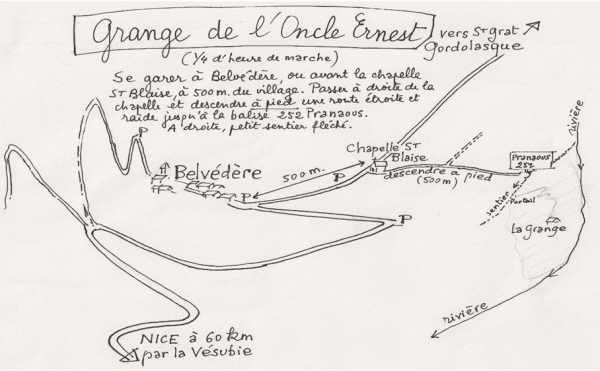 Grange de l'Oncle Ernest
(1/4 d'heure de marche)
vers St grat
Gordolasque
Se garer à Belvédère, ou avant la chapelle
St Blaise, à 500 m. du village. Passer à droite de la
chapelle et descendre à pied une route étroite et
raide jusqu'à la balise 252 Pranaous.
A droite, petit sentier fléché.
P
Chapelle St
Blaise
rivière
Pranaous
252
Belvédère
500 m.
P
descendre à pied
(500m)
P
sentier
Portail
P
La grange
rivière
NICE à 60 km
par la Vésubie